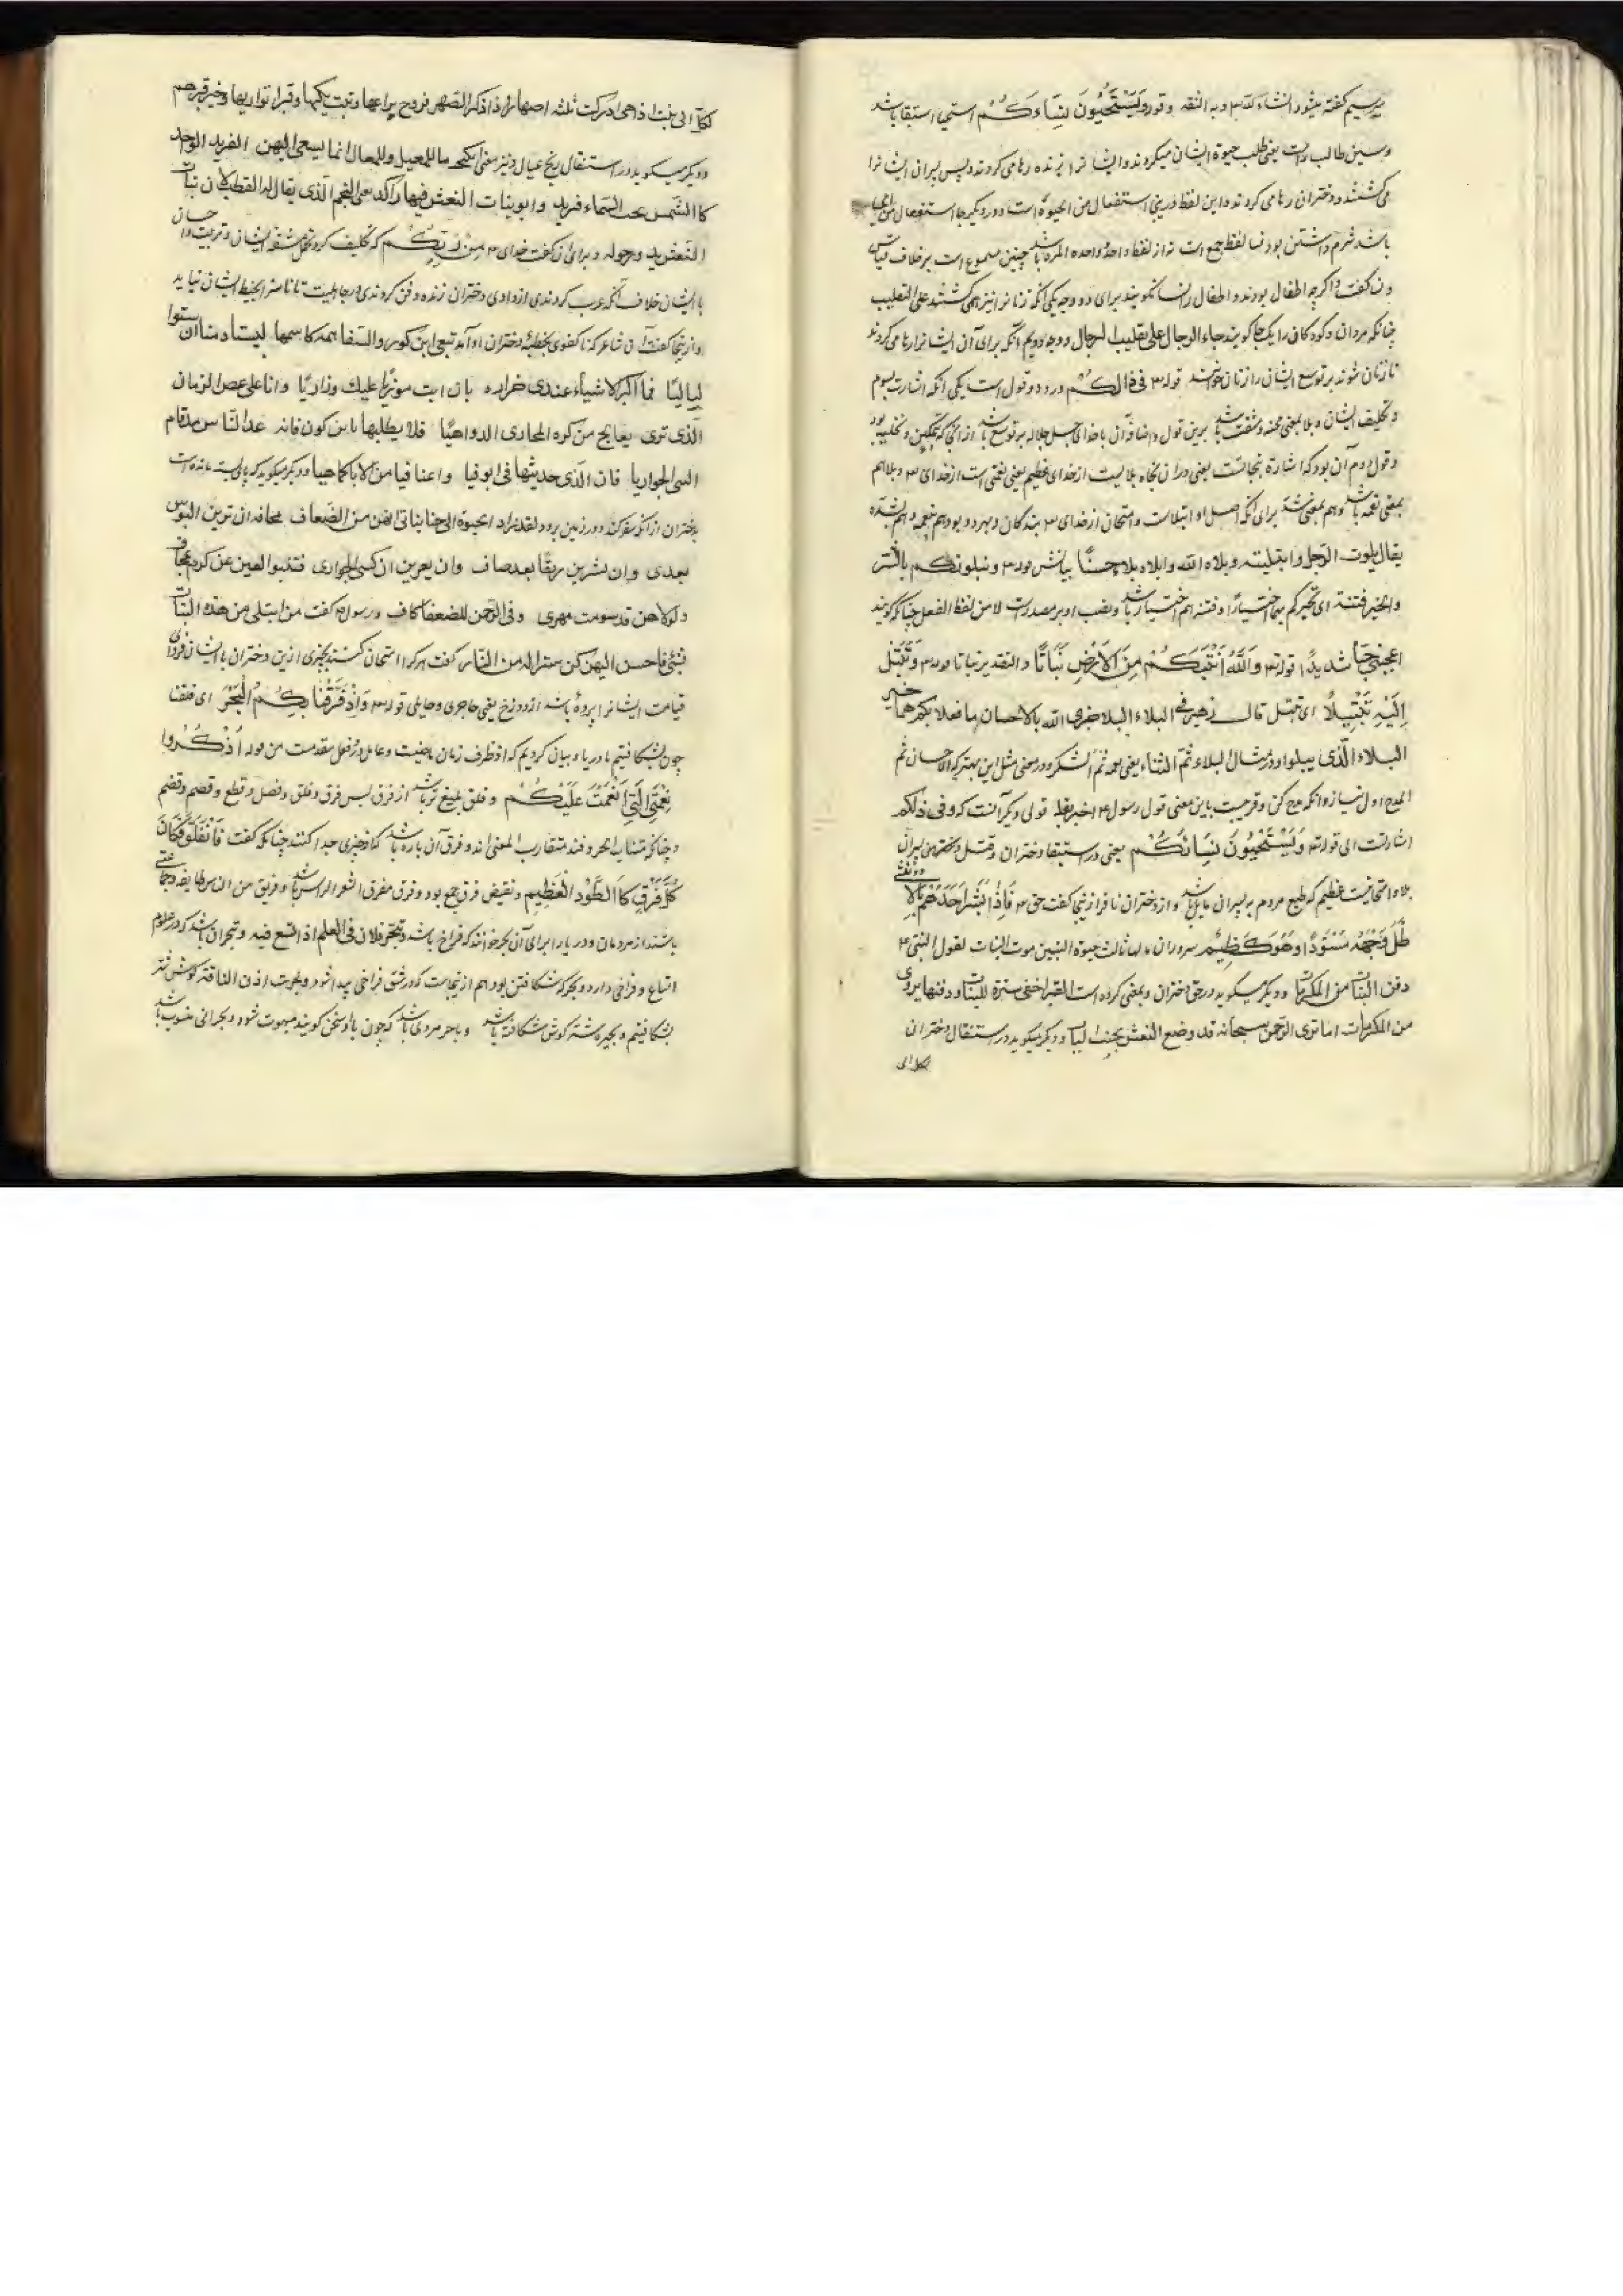 برسیم گفته بیثور انشاءالله و به الثقه و قوله وَیَسْتَحْیُونَ نِسَاءَکُمْ استحیا استبقا باشد
و سین طالب است یعنی طلب حیوة ایشان میکردند و ایشا نرا زنده رها می کردند و پس پسران ایشا نرا
می کشتند و دختران رها می کردند و این لفظ درینجا استفعال من الحیوة است و در دیگر جا استفعال من الحیا
باشد شرم داشتن بود نسا لفظ جمع است نه از لفظ واحد و واحده المرة باشد چنین مسموع است بر خلاف قیاس
و اگرچه اطفال بودند و اطفال را نسا نگویند برای دو وجه یکی آنکه زنا نرا نیز همی کشتند علی التغلیب
چنانکه مردان و کودکان را یکجا گویند جاء الرجال علی تغلیب الرجال و وجه دویم آنکه برای آن ایشا نرا رها می کردند
تا زنان شوند بر توسع ایشان را زنان خوانند قوله فی ذالِکُمْ درو دو قول است یکی آنکه اشارت بسوم
و تکلیف ایشان و بلا بمعنی محنه و مشقت باشد برین قول و اضافه آن با خدای جل جلاله بر توسع باشد از آنجا که تمکین و تخلیه بود
و قول دوم آن بود که اشارة بنجاتست یعنی در ان نجاة بلا یست از خدای عظیم یعنی نعمتی است از خدای و بلا هم
بمعنی نعمة باشد و هم بمعنی شدة برای آنکه اصل او ابتلاست و امتحان از خدای بندگان و بهر دو بود هم بنعمه و هم بشدة
یقال بلوت الرجل و ابتلیته و بلاه الله و ابلاه بلاءً حسنًا بیانش قوله و نبلونکم بالشر
والخیر فتنة ای نخیرکم بهما اختیارًا و فتنه هم اختیار باشد و نصب او بر مصدرست لا من لفظ الفعل چنانکه گویند
اعجبنی حبًا شدیدًا قوله وَاللهُ اَنْبَتَکُمْ مِنَ الْاَرْضِ نَبَاتًا والتقدیر نباتا قوله وَتَبَتَّلْ
اِلَیْهِ تَبْتِیلًا ای تبتل قال زهیر فی البلاء البلا جزی الله بالاحسان ما فعلا بکم فابلاهما خیر
البلاء الذی یبلوا و در مثال البلاء ثم الثناء یعنی نعمه ثم الشکر و در معنی مثل این بهتر که الاحسان ثم
المدح اول بنیاز و آنکه مدح کن و قریب باین معنی قول رسول اخبر تقله قولی دیگر آنست که و فی ذلکم
اشارتست الی قوله وَیَسْتَحْیُونَ نِسَائَکُمْ یعنی در استبقا دختران و قتل پسران
بلا و امتحانیست عظیم که طبع مردم به پسران مایل باشد و از دختران نافر از اینجا گفت حق وَاِذَا بُشِّرَ اَحَدُهُمْ بِالْاُنْثٰی
ظَلَّ وَجْهُهُ مُسْوَدًّا وَهُوَ کَظِیْمٌ سروران ما لها ثالث حیوة البنین موت البنات لقول النبی
دفن البنات من المکرمات و دیگر میگوید در حق دختران و بمعنی کرده است القبر اخفی سترة للبنات و دفنها یروی
من المکرمات اما تری الرحمن سبحانه قد وضع النعش بجنب البنات و دیگر میگوید در استنقال دختران
لکل ابی
لکل ابی بنت اذا هی ادرکت ثلثه اصهار اذا ذکر الصهر فزوج یراعیها و بیت یکنها و قبر تواریها و خیر قبرهم
و دیگر میگوید در استنقال رنج عیال و نیز معنی ما للمعیل و للمعالی انما یسعی الیهن الفرید الواحد
کالشمس تجتاب السماء فرید و ابو بنات النعش فیها راکد یعنی النجم الذی یقال له القطب لان بنات
النعش یدور حوله و برای آن گفت خدای مِنْ رَبِّکُمْ که تکلیف کرد تحمل مشقه ایشان و تربیت و احسان
با ایشان خلاف آنکه عرب کردندی از وادی دختران زنده دفن کردندی در جاهلیت تا ناسزا بخیط ایشان نیاید
لیالیًا فما اکبر الاشیاء عندی حراره بان ابت مزریا علیک و زاریًا و انا علی عص الزمان
الذی تری یعالج من کره المخازی الدواهیًا فلا یطلبها یا ابن کوز فانه غذا الناس مذ قام
النبی الجواریا فان الذی حدثتها فی انوفنا و اعناقنا من الاباکماهیا و دیگر میگوید که پای بسته مانده است
بدختران از آنکو سفر کند و در زمین برود لقد زاد الحیوة الی حبا بناتی انهن من الضعاف مخافة ان ترین البوس
بعدی و ان یشربن رنقًا بعد صاف و ان یعرین ان کسی الجواری فتنبوا العین عن کرم عجاف
ولولاهن قد سومت مهری و فی الرحمن للضعفا کاف و رسول گفت من ابتلی من هذه البنات
بشیئ فاحسن الیهن کن سترًا له من النار گفت هر که را امتحان کنند بچیزی از این دختران با ایشان فردای
قیامت ایشا نرا پرده باشد از دوزخ یعنی حاجزی و حایلی قوله وَاِذْ فَرَقْنَا بِکُمُ الْبَحْرَ ای فلقنا
چون بشکافتیم ما دریا و بیان کردیم که اذ ظرف زمان ماضیست و عامل در فعل مقدمست من قوله اُذْکُرُوا
نِعْمَتِیَ الَّتِی اَنْعَمْتُ عَلَیْکُمْ و فلق بلیغ تر باشد از فرق لیس فرق و فلق و فصل و قطع و قصم و فصم
و چنانکه متشابه الحروفند متقارب المعنی اند و فرق آن باره باشد که از چیزی جدا کنند چنانکه گفت فَانْفَلَقَ فَکَانَ
کُلُّ فِرْقٍ کَالطَّوْدِ الْعَظِیْمِ و نقیض فرق جمع بود و فرق مفرق الشعر الراس باشد و فریق من الناس طایفه و جماعتی
باشند از مردمان و دریا را برای آن بحر خوانند که فراخ باشد و تبحر فلان فی العلم اذا اتسع فیه و تبحر آن باشد که در علوم
اتساع و فراخی دارد و بحر که شکافتن بود هم از اینجاست که در شق فراخی پیدا شود و بحرت اذن الناقة گوش شتر
بشکافتیم و بحیره شتر گوش شکافته باشد و باحر مردی باشد که چون با او سخن گویند مبهوت شود و بحرانی منسوب باشد